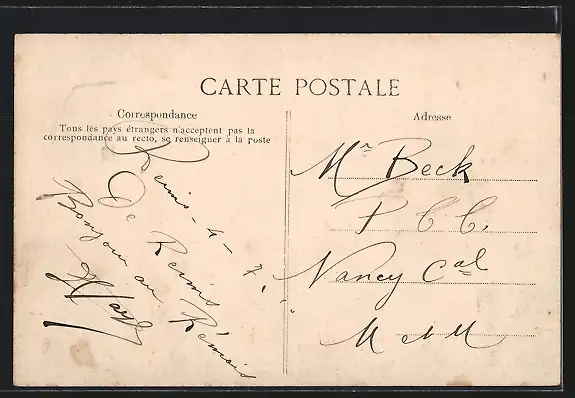 CARTE POSTALE
Correspondance
Tous les pays étrangers n'acceptent pas la
correspondance au recto, se renseigner à la poste
Reims - 4 - 7.
De Reims
Bonjour au Rémois
Adresse
Mr Beck
P. C. C.
Nancy Cal
M et M